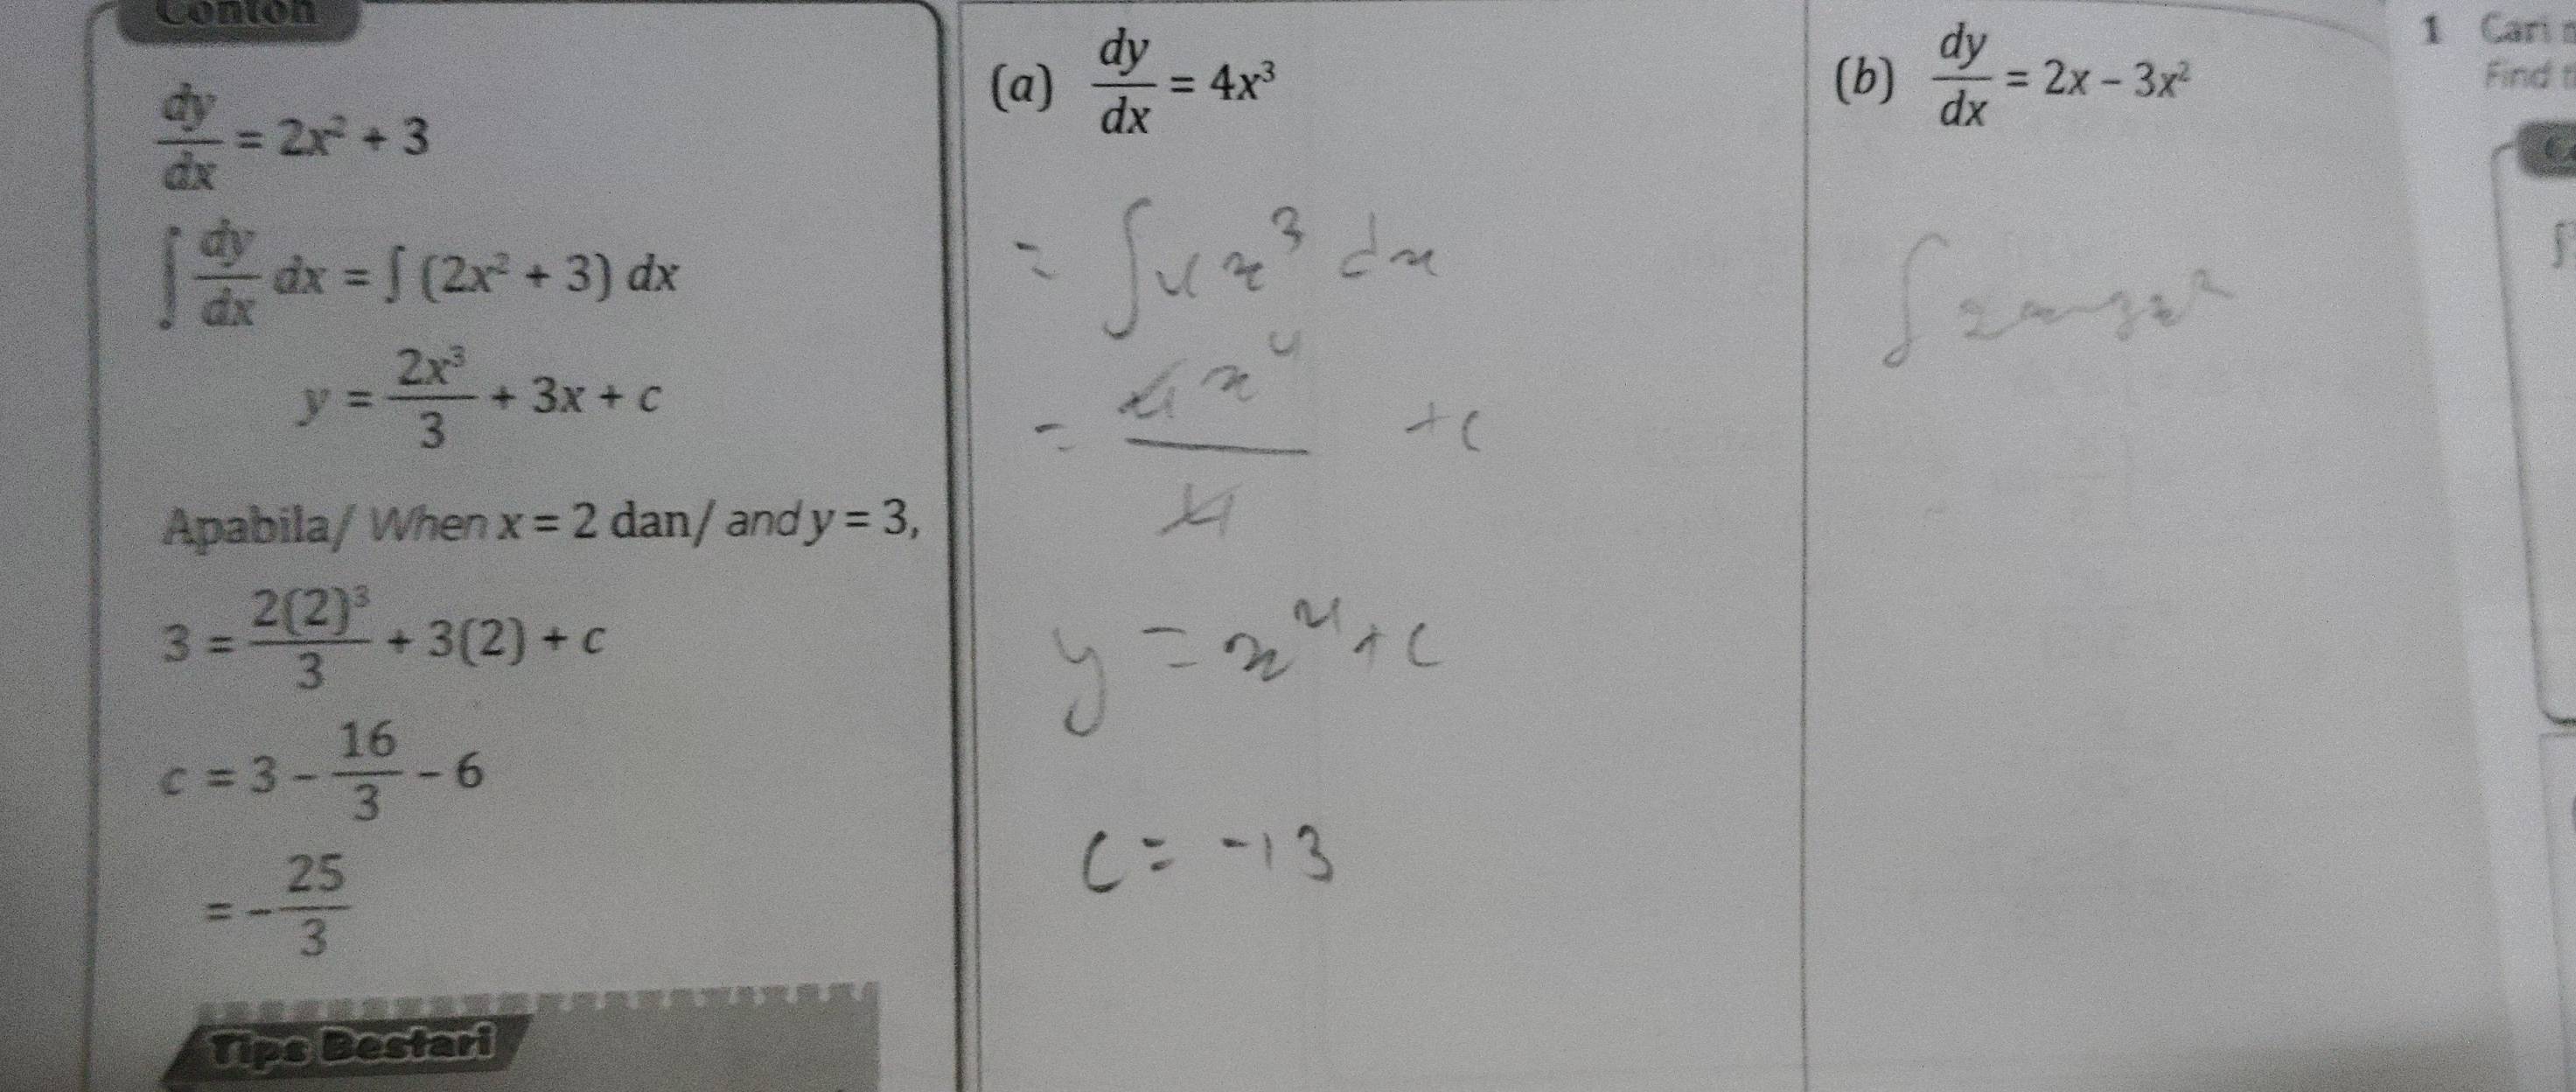 Contoh
dy/dx = 2x² + 3
∫ dy/dx dx = ∫ (2x² + 3) dx
y = 2x³/3 + 3x + c
Apabila/ When x = 2 dan/ and y = 3,
3 = 2(2)³/3 + 3(2) + c
c = 3 - 16/3 - 6
= -25/3
Tips Bestari
(a) dy/dx = 4x³
= ∫4x³ dx
= 4x⁴/4 + c
y = x⁴ + c
c = -13
(b) dy/dx = 2x - 3x²
∫2x-3x²
1 Cari
Find